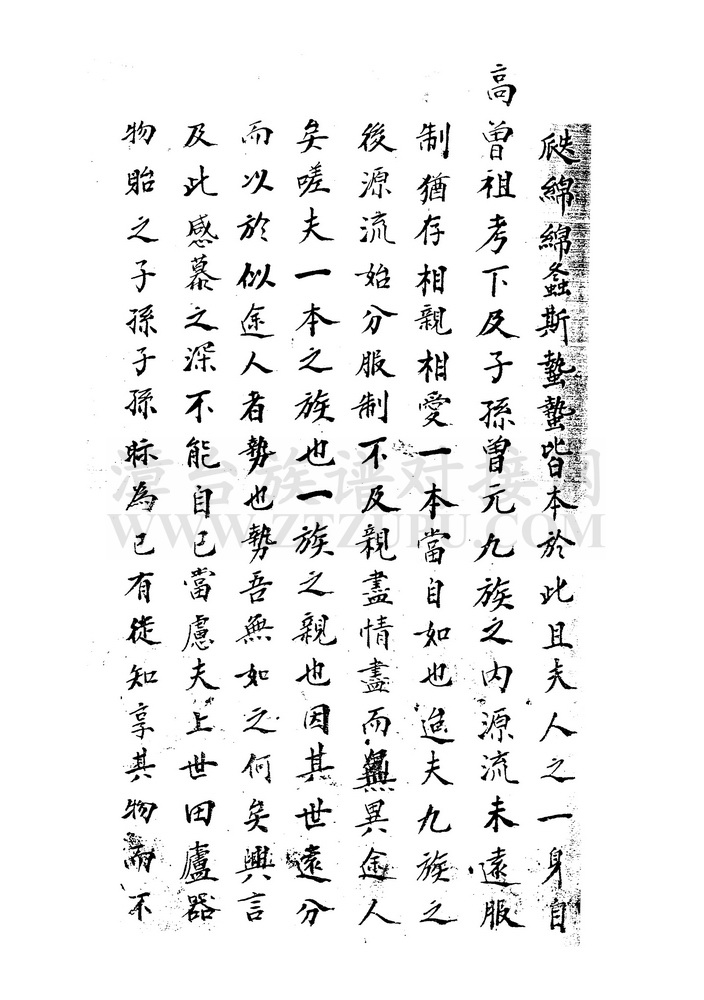 瓞綿綿螽斯蟄蟄皆本於此且夫人之一身自
高曾祖考下及子孫曾元九族之內源流未遠服
制猶存相親相愛一本當自如也迨夫九族之
後源流始分服制不及親盡情盡而無異途人
矣嗟夫一本之族也一族之親也因其世遠分
而以於似途人者勢也勢吾無如之何矣興言
及此感慕之深不能自已當慮夫上世田廬器
物貽之子孫子孫眎為己有徒知享其物而不
漳台族谱对接网
WWW.ZTZUPU.COM